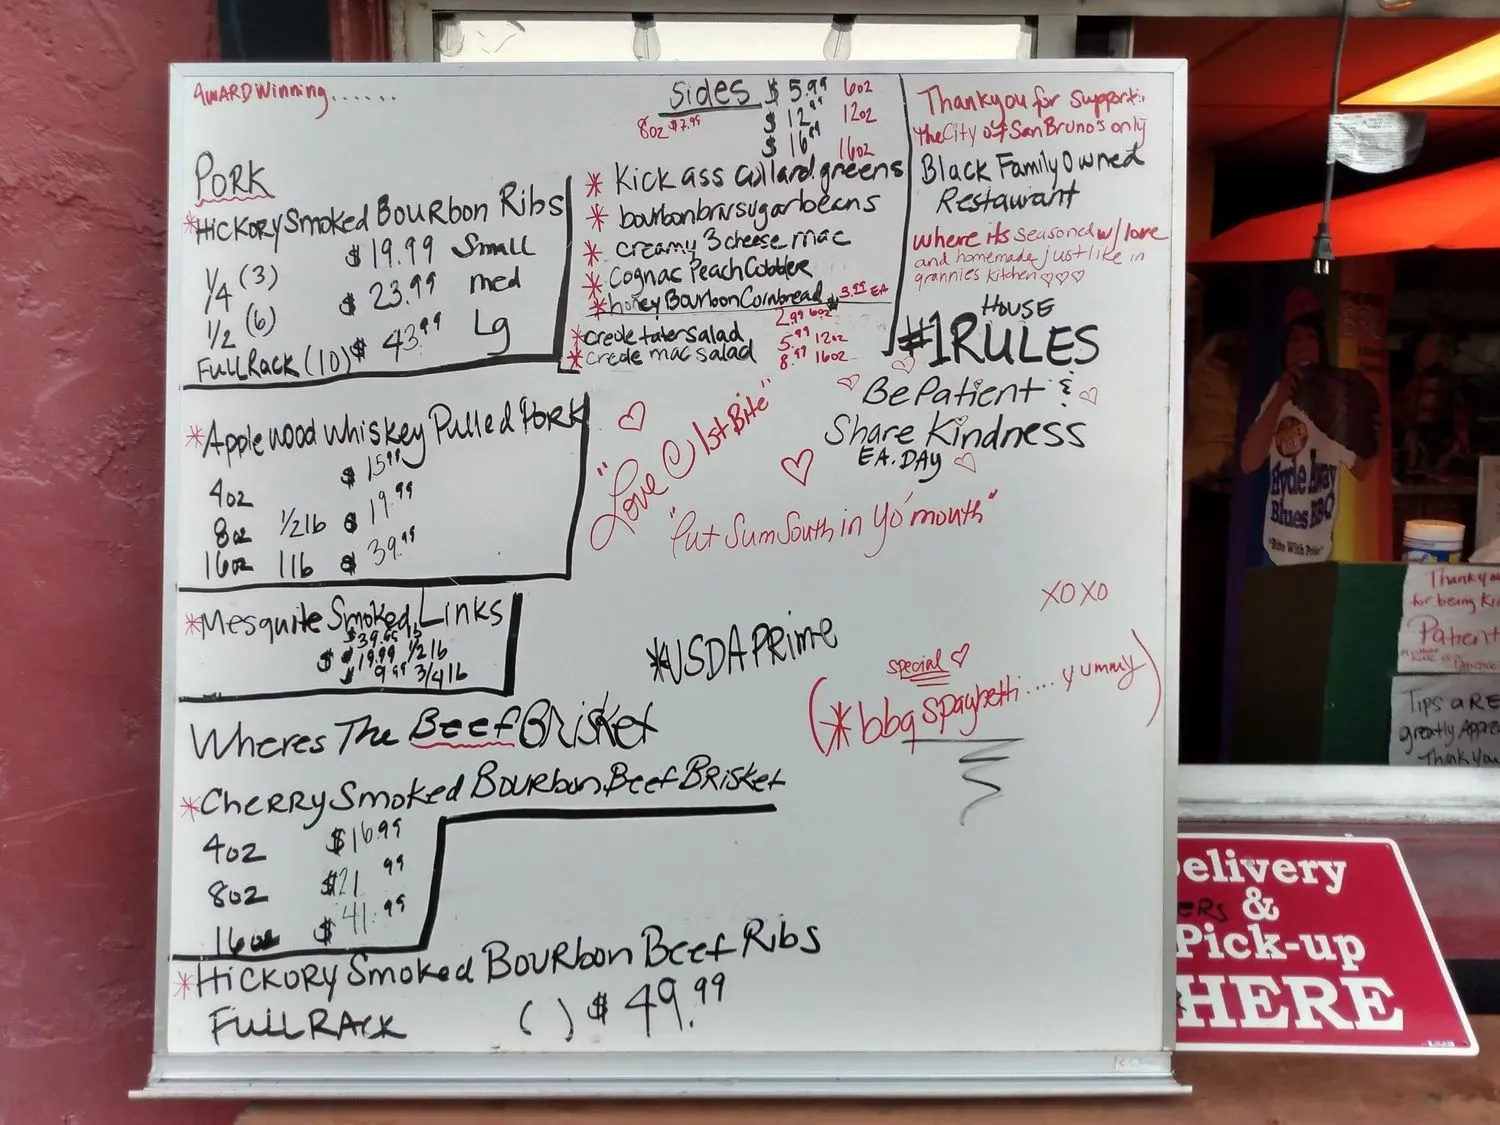 AWARD Winning......
PORK
*HICKORY Smoked BOURBON RIBS
$19.99 Small
1/4 (3) $23.99 med
1/2 (6)
Full Rack (10) $43.99 Lg
*Applewood whiskey Pulled PORK
4oz $15.99
8oz 1/2 lb $19.99
16oz 1 lb $39.99
*Mesquite Smoked Links
$39.99 lb
$19.99 1/2 lb
$9.99 3/4 lb
Wheres The Beef BRISKET
*CHERRY Smoked BOURBON Beef BRISKET
4oz $16.99
8oz $21.99
16oz $41.99
*HICKORY Smoked BOURBON Beef RIBS
Full RACK ( ) $49.99
Sides $5.99 6oz
8oz $7.99 $12.99 12oz
$16.99 16oz
*Kick ass collard greens
*bourbon brwsugar beans
*creamy 3 cheese mac
*Cognac Peach Cobbler
*honey Bourbon Cornbread 3.99 EA
*creole tater salad 2.99 6oz
5.99 12oz
*creole mac salad 8.99 16oz
Thankyou for support..
the City of San Bruno's only
Black Family Owned
Restaurant
where its seasoned w/ love
and homemade just like in
grannies kitchen
HOUSE
#1 RULES
Be Patient &
Share Kindness
EA. DAY
"Love @ 1st Bite"
"Put Sum South in Yo' mouth"
XOXO
*USDA PRIME
special
(*bbq spaghetti.... yummy)
Hyde Away
Blues BBQ
"Bite With Pride"
Thank you
for being Ki
Patient
Tips aRE
greatly Appre
Thank You
Delivery
&
Pick-up
HERE